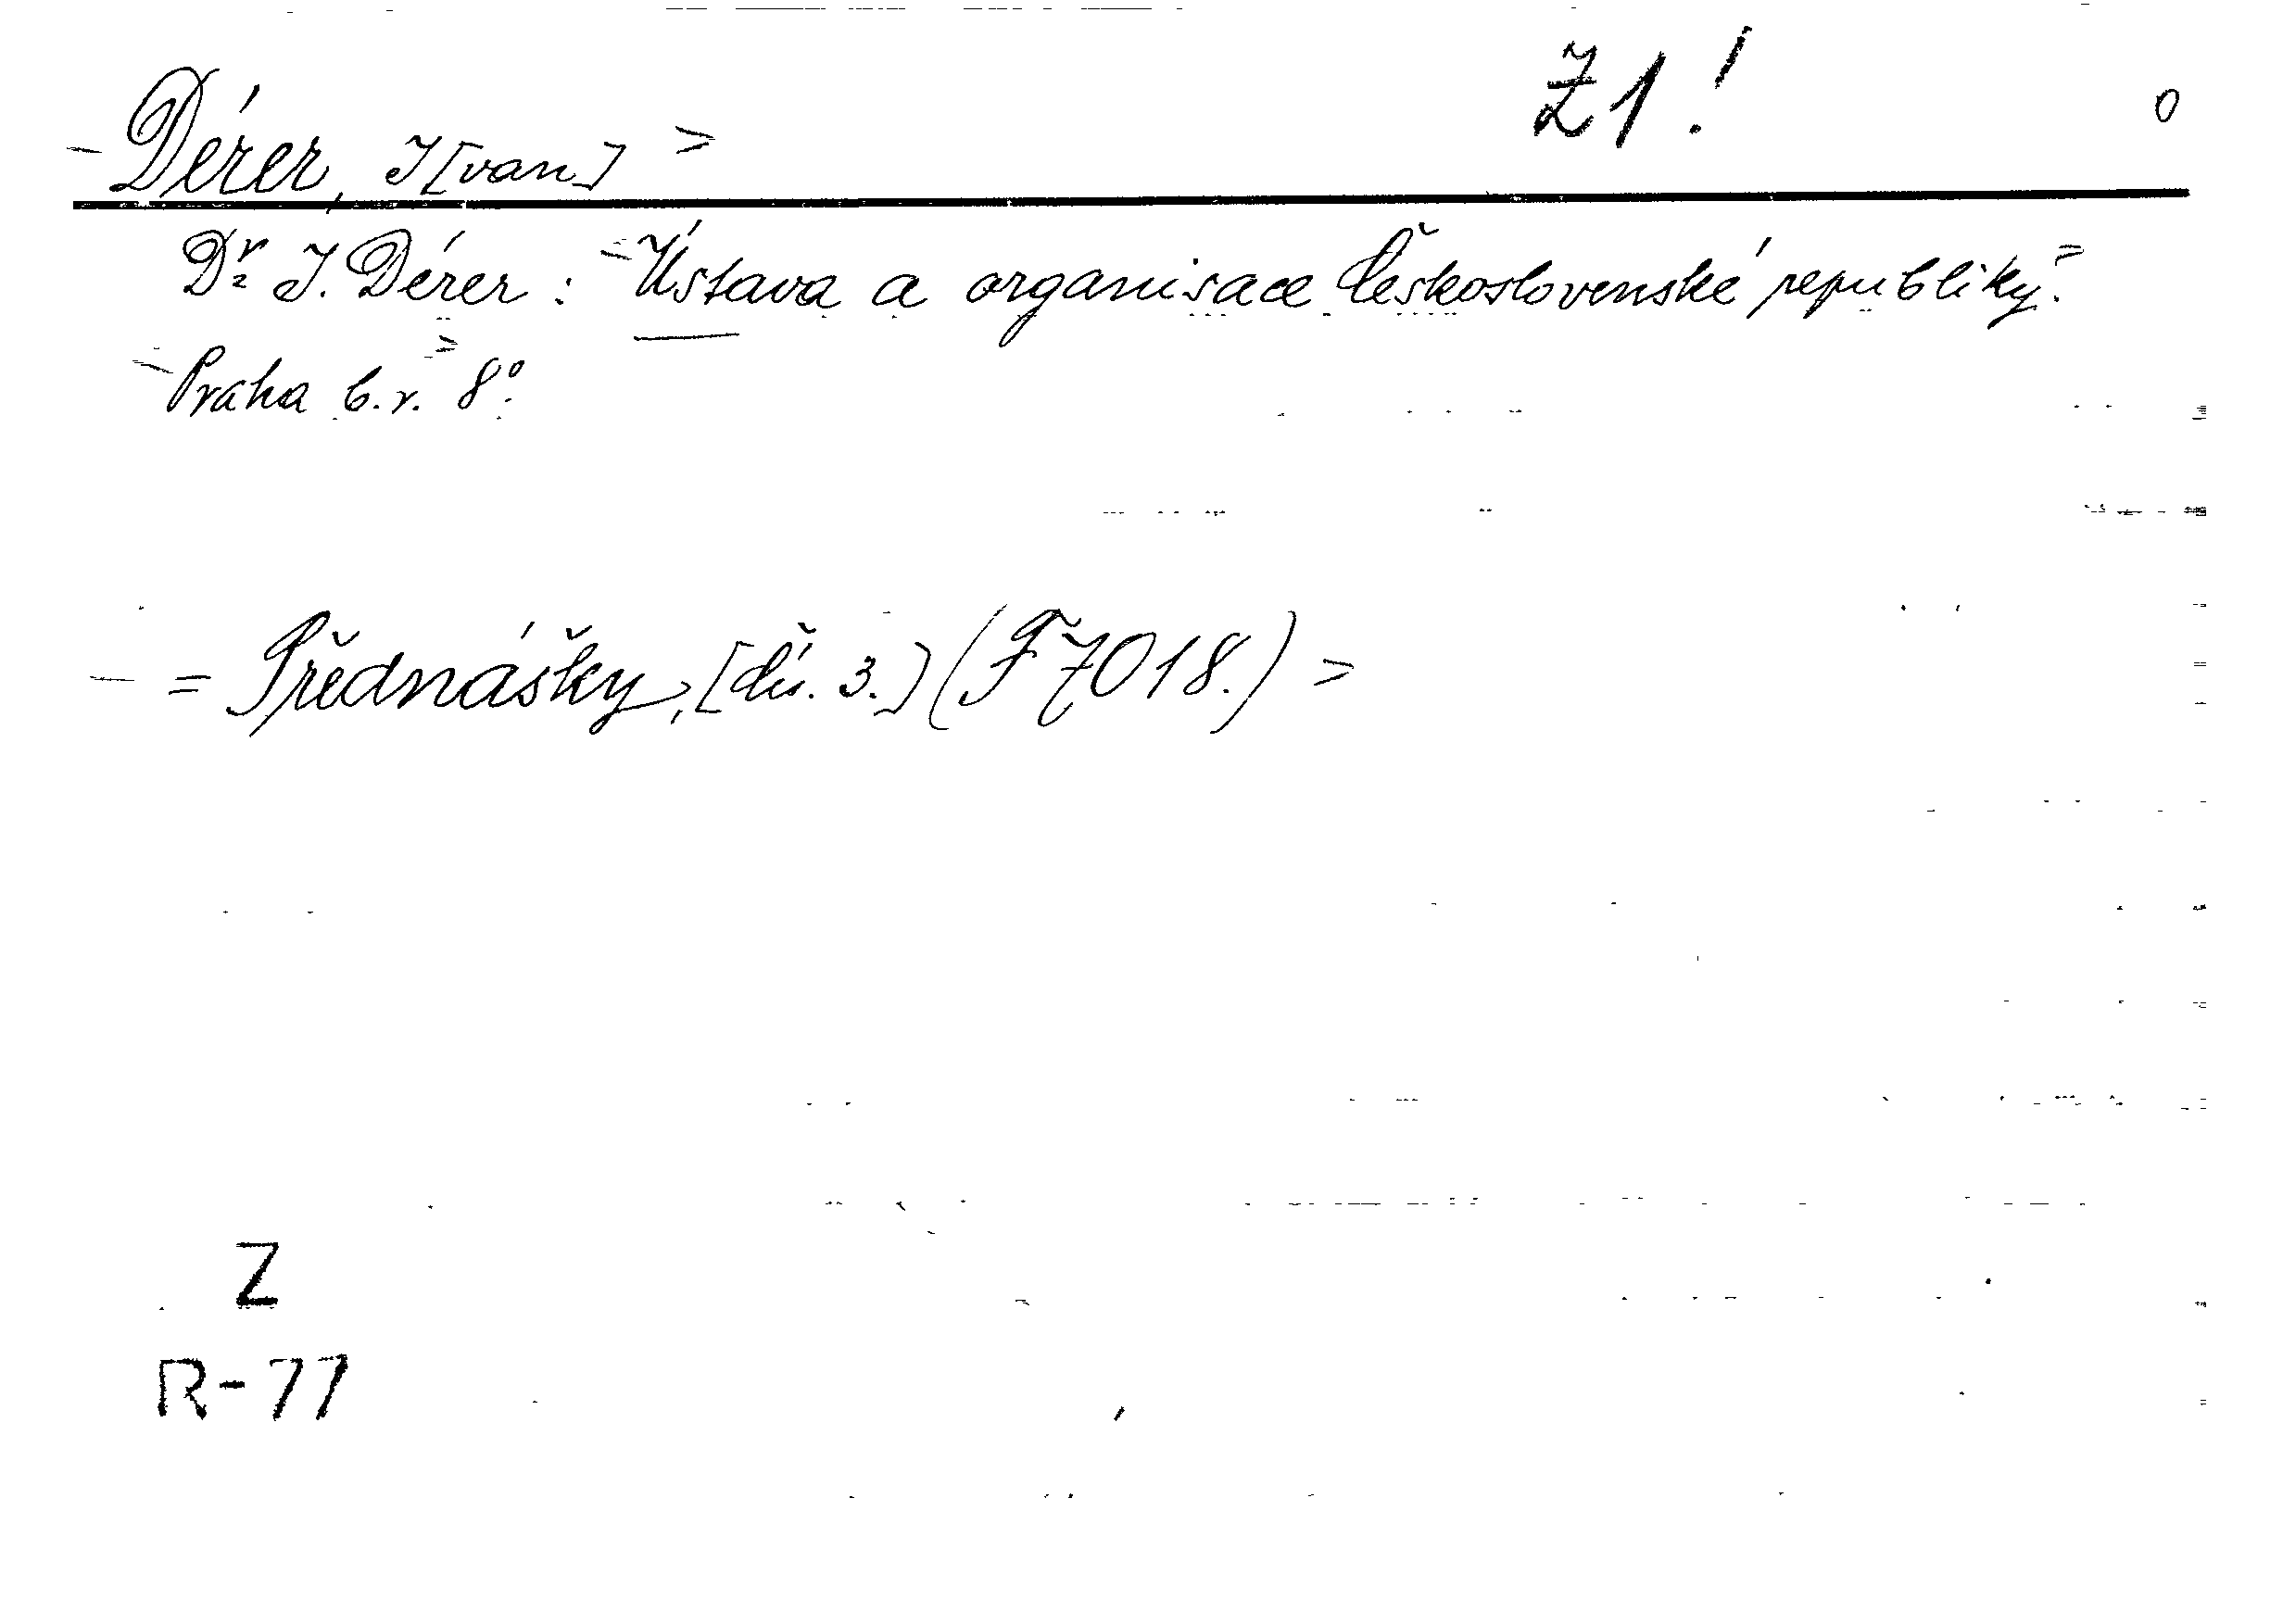 Z1!
0
Dérer, I[van]
Dr. I. Dérer: Ústava a organisace Československé republiky.
Praha b.r. 8°.
= Přednášky, [čís. 3.] (F 7018.)
Z
R-77